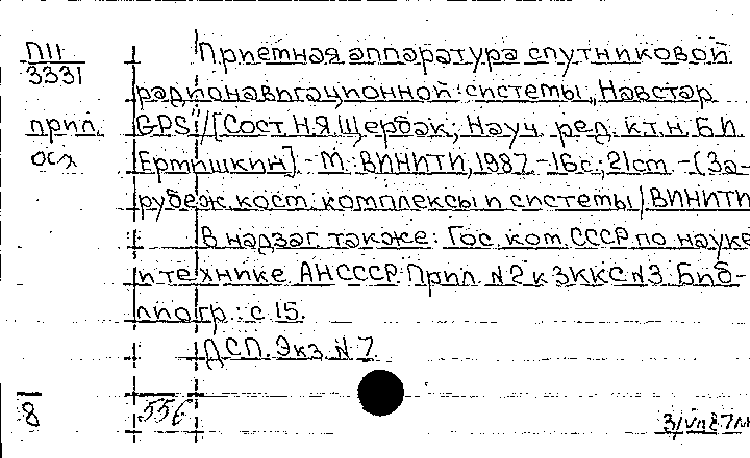 П11
3331
прил.
осн
Приемная аппаратура спутниковой
радионавигационной системы „Навстар
GPS"/[Сост. Н.Я. Щербак; Науч. ред. к.т.н. Б.И.
Ермишкин]. - М.: ВИНИТИ, 1987. - 16 с.; 21 см. - (За-
рубеж. косм. комплексы и системы / ВИНИТИ
В надзаг. также: Гос. ком. СССР по науке
и технике. АН СССР. Прил. N 2 к ЗККС N 3. Биб-
лиогр.: с. 15.
ДСП. Экз. N 7
8
556